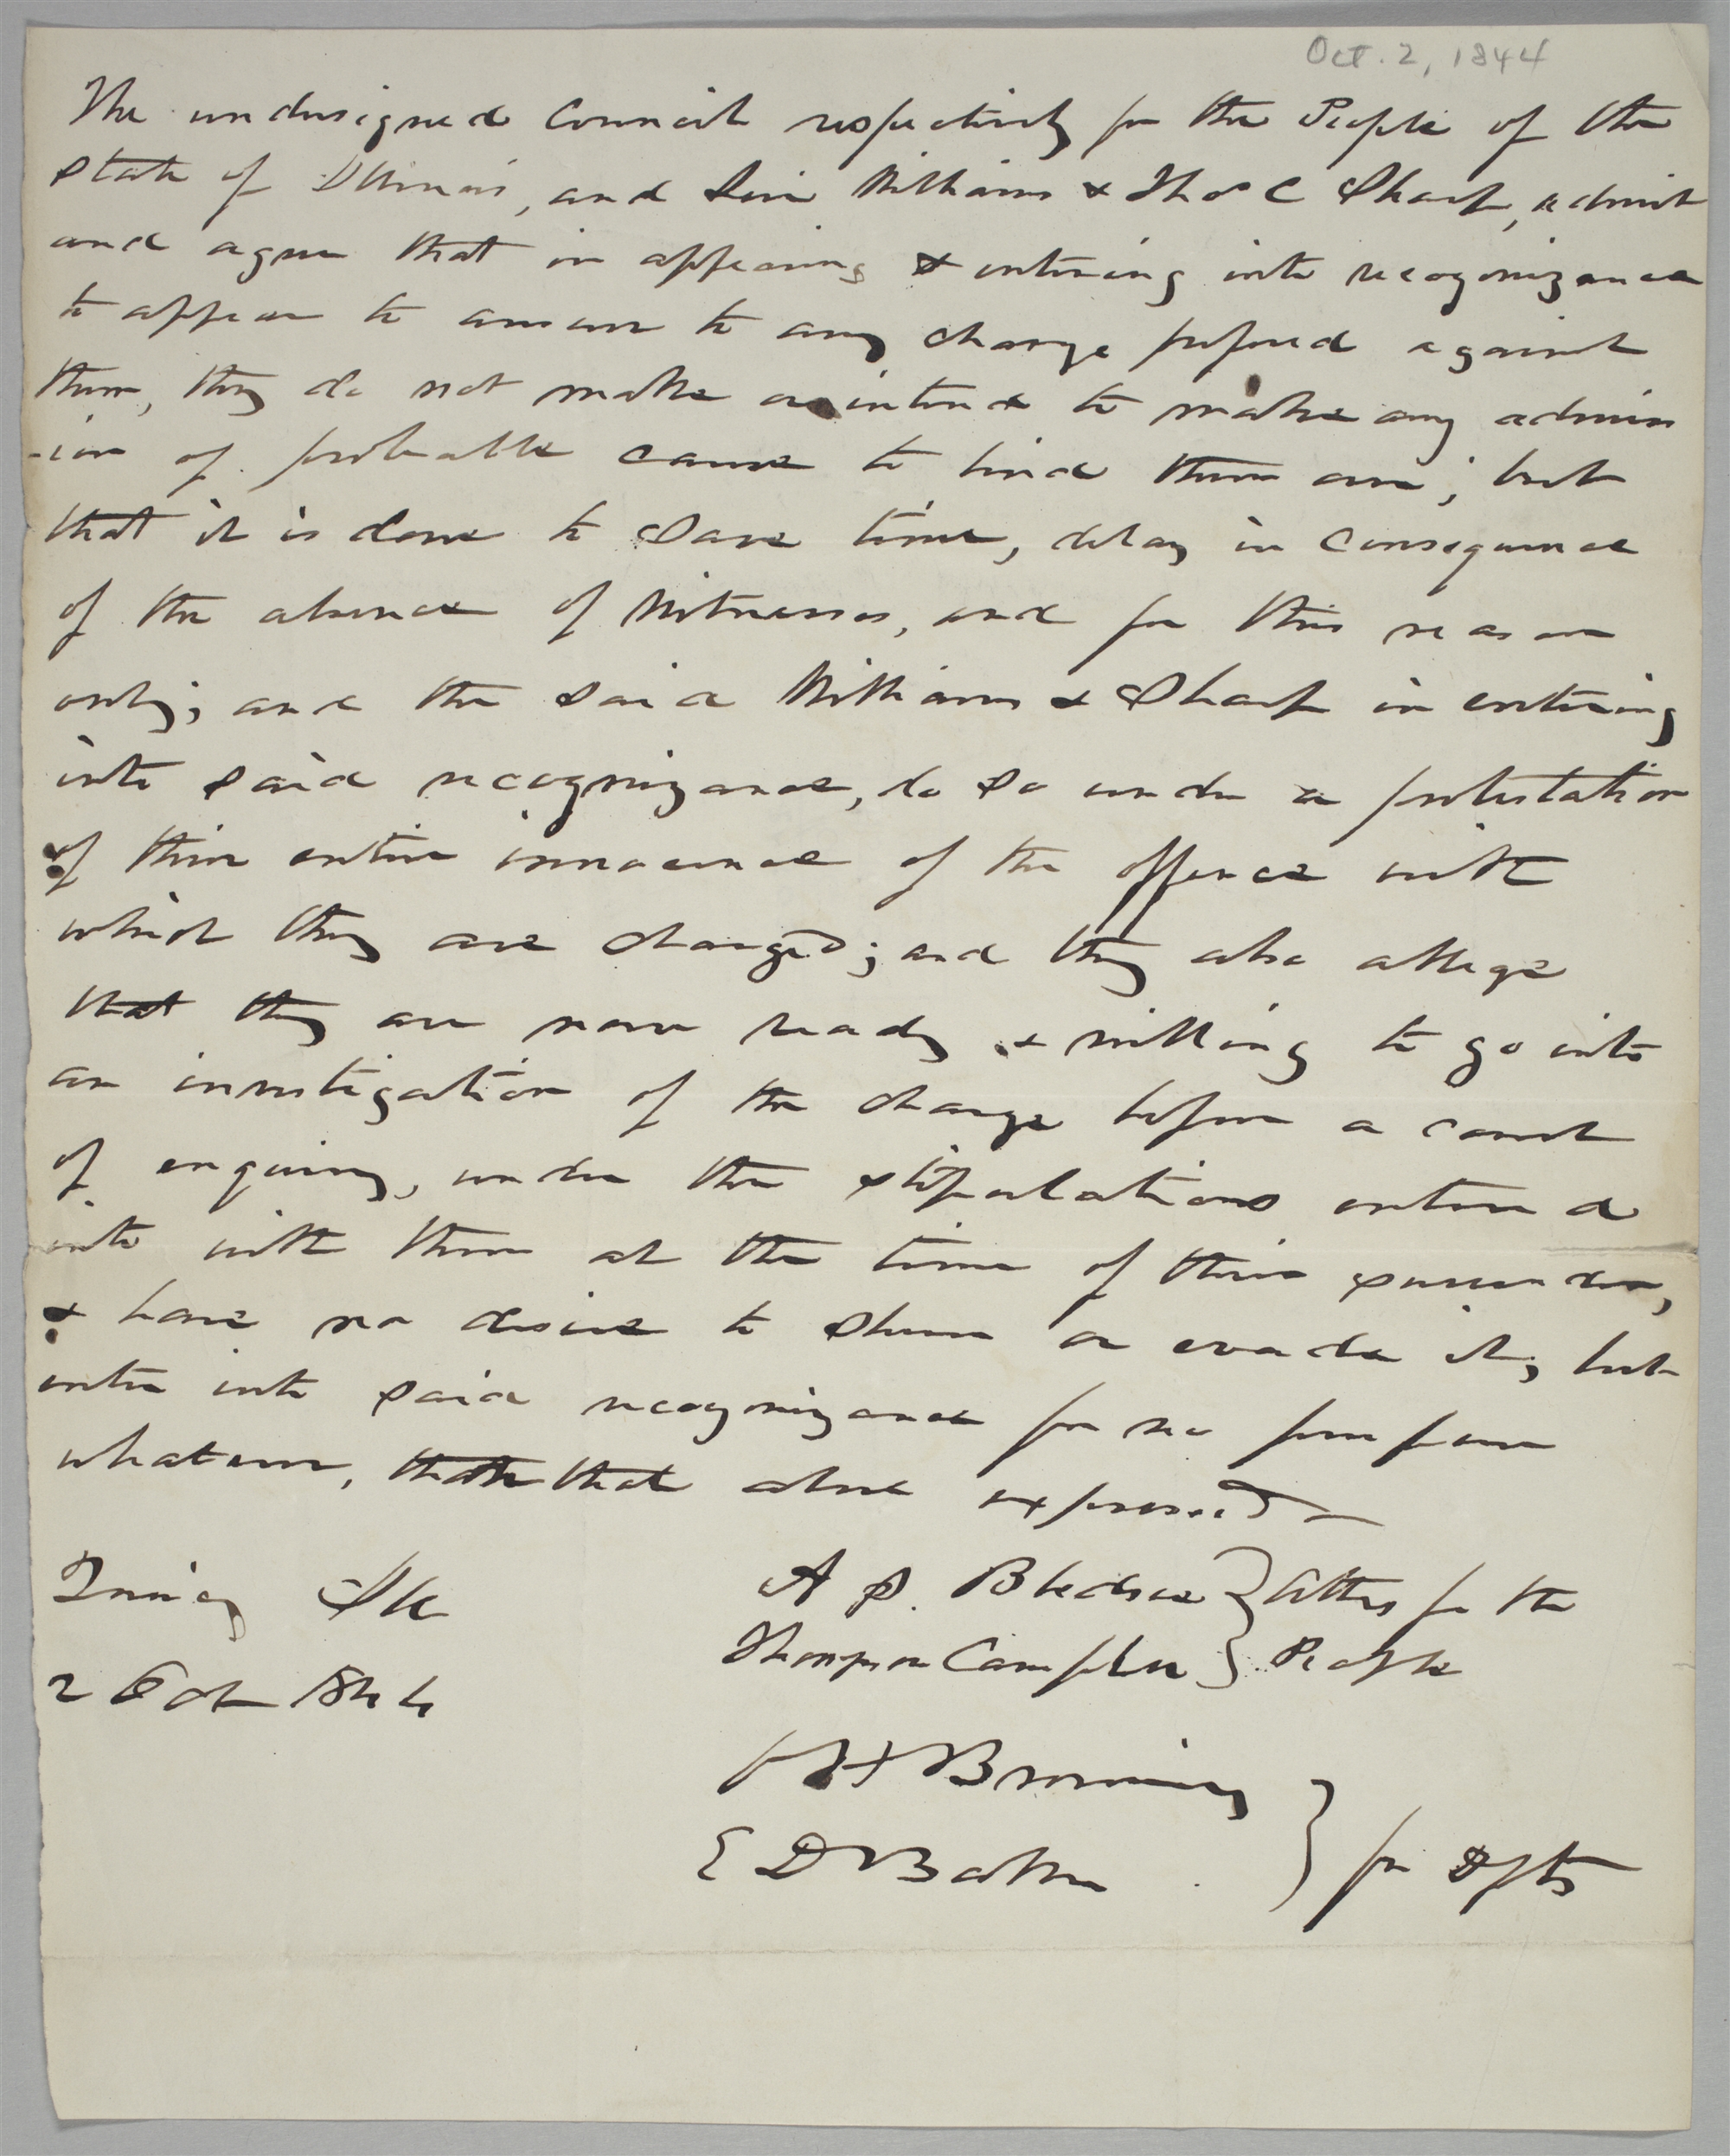 Oct. 2, 1844
The undersigned Council respectively for the People of the
State of Illinois, and Levi Williams & Thos C Sharp, admit
and agree that in appearing & entering into recognizance
to appear to answer to any charge prefered against
them, they do not make or intend to make any admiss
-ion of probable cause to bind them over; but
that it is done to save time, delay in consequence
of the absence of Witnesses, and for this reason
only; and the said Williams & Sharp in entering
into said recognizance, do so under a protestation
of their entire innocence of the offence with
which they are charged; and they also allege
that they are now ready & willing to go into
an investigation of the charge before a court
of enquiry, under the stipulations entered
into with them at the time of their surrender,
& have no desire to shun or evade it; but
enter into said recognizance for no purpose
whatever, than that above expressed—
Quincy Ills
2 Oct 1844
A. S. Bledsoe } Attys for the
Thompson Campbell } People
O H Browning
E D Baker } for Defts